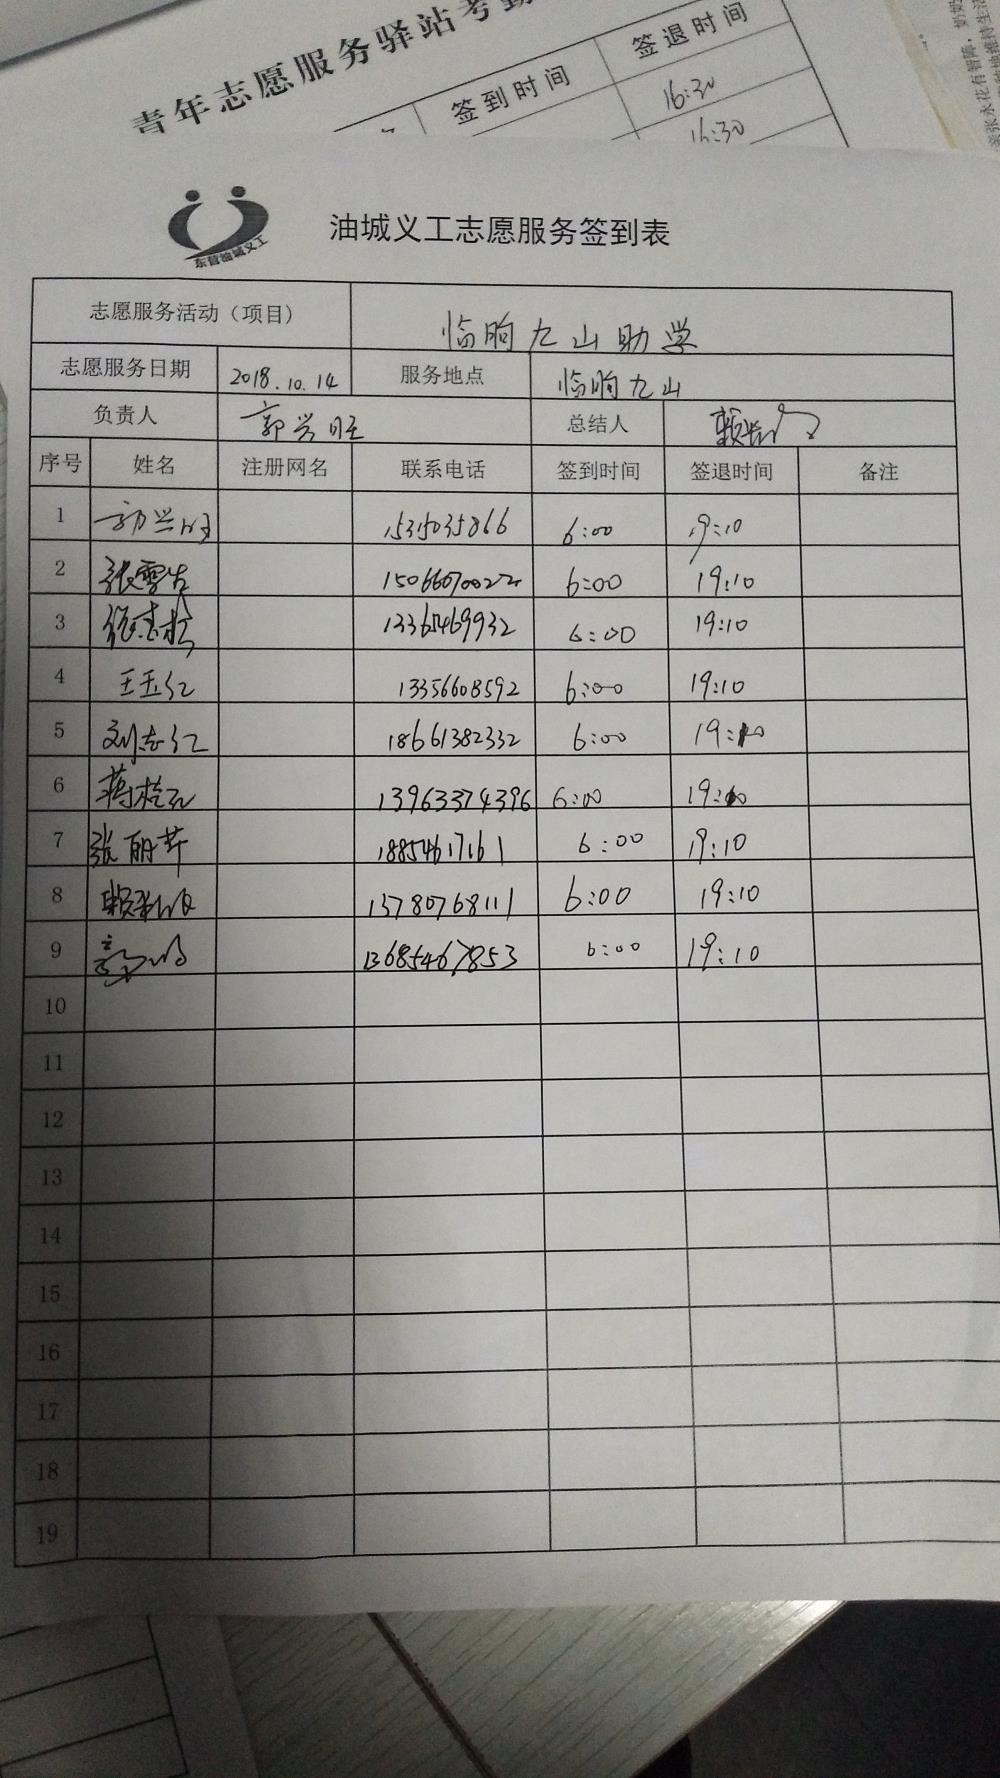 青年志愿服务驿站考勤
签到时间 签退时间
16:30
16:30
东营油城义工
油城义工志愿服务签到表
志愿服务活动（项目） 临朐九山助学
志愿服务日期 2018.10.14 服务地点 临朐九山
负责人 郭兴旺 总结人
序号 姓名 注册网名 联系电话 签到时间 签退时间 备注
1 6:00 19:10
2 6:00 19:10
3 13365469932 6:00 19:10
4 王玉红 13356608592 6:00 19:10
5 刘志红 18661382332 6:00 19:10
6 13963374396 6:00 19:10
7 张丽芹 18854617161 6:00 19:10
8 13780768111 6:00 19:10
9 13685467853 6:00 19:10
10
11
12
13
14
15
16
17
18
19